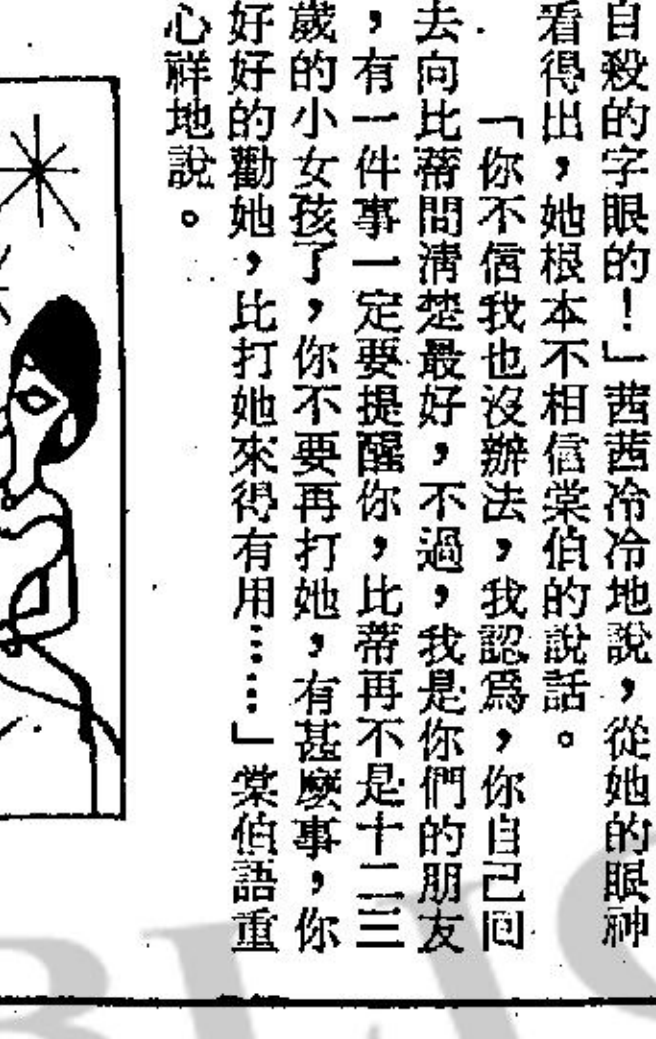 自殺的字眼的！」茜茜冷冷地說，從她的眼神
看得出，她根本不相信棠伯的說話。
「你不信我也沒辦法，我認爲，你自己囘
去向比蒂問清楚最好，不過，我是你們的朋友
，有一件事一定要提醒你，比蒂再不是十二三
歲的小女孩了，你不要再打她，有甚麼事，你
好好的勸她，比打她來得有用……」棠伯語重
心祥地說。